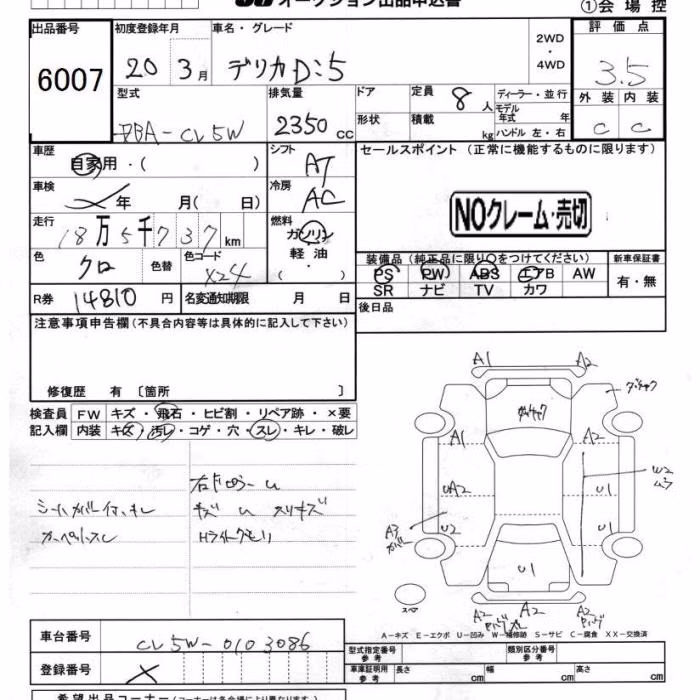 オークション出品申込書
①会場控
出品番号
6007
初度登録年月
20 3月
車名・グレード
デリカD:5
2WD
・
4WD
評価点
3.5
外装 内装
C C
型式
DBA-CV5W
排気量
2350cc
ドア
形状
定員 8人
積載 kg
ディーラー・並行
モデル
年式 年
ハンドル 左・右
車歴
自家用・( )
シフト
AT
セールスポイント (正常に機能するものに限ります)
NOクレーム・売切
車検
年 月( 日)
冷房
AC
走行
18万5千737km
燃料
ガソリン
軽油
・( )
色
クロ
色替
色コード
X24
装備品(純正品に限り○をつけてください)
PS PW ABS エアB AW
SR ナビ TV カワ
新車保証書
有・無
R券 14810円
名変通知期限 月 日
後日品
注意事項申告欄(不具合内容等は具体的に記入して下さい)
修復歴 有〔箇所 〕
検査員
記入欄
FW キズ・飛石・ヒビ割・リペア跡・×要
内装 キズ・汚レ・コゲ・穴・スレ・キレ・破レ
キズ U スリキズ
カーペットスレ
Hライトクモリ
A1 A2
A1 A2
UA2 U1
U2 U1
W2
U1
A3
カバー
スペア
A2 A2 A2
A-キズ E-エクボ U-凹み W-補修跡 S-サビ C-腐食 XX-交換済
車台番号
CV5W-0103086
登録番号
型式指定番号
参考
類別区分番号
参考
車庫証明用
参考
長さ cm 幅 cm 高さ cm
希望出品コーナー